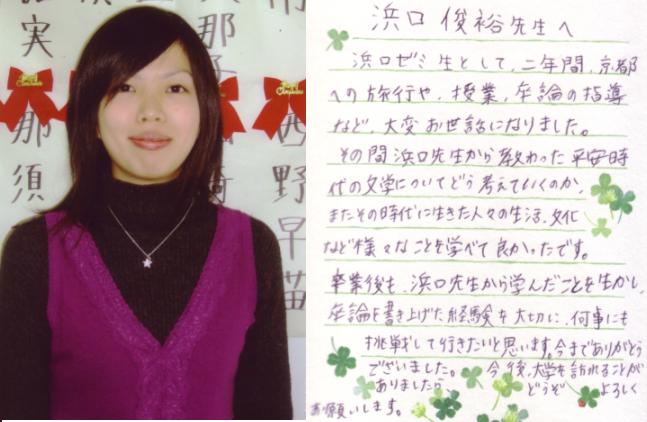 実
那
須
那
西
野
早
苗
浜口 俊裕先生へ
浜口ゼミ生として、二年間、京都
への旅行や、授業、卒論の指導
など、大変お世話になりました。
その間浜口先生から教わった平安時
代の文学についてどう考えていくのか、
またその時代に生きた人々の生活、文化
など様々なことを学べて良かったです。
卒業後も、浜口先生から学んだことを生かし、
卒論を書き上げた経験を大切に、何事にも
挑戦して行きたいと思います。今までありがとう
ございました。 今後、大学を訪れることが
ありましたら どうぞ よろしく
お願いします。